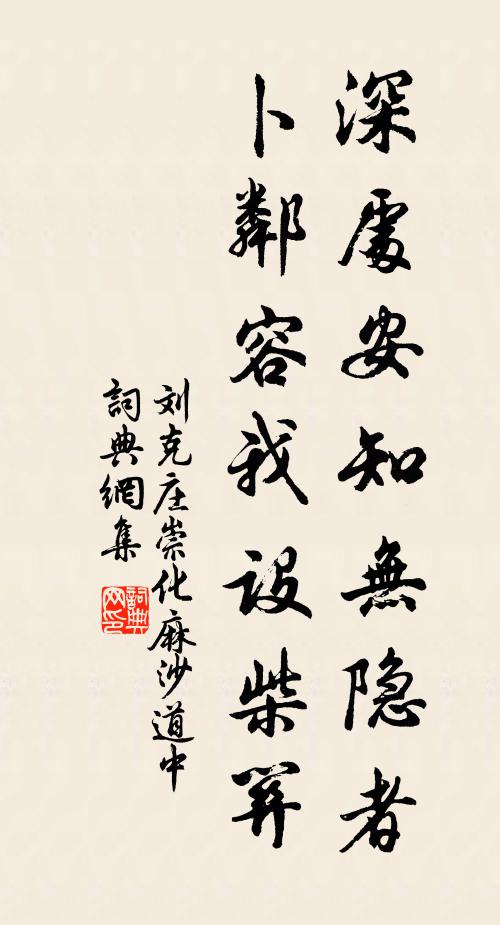 深處安知無隐者
卜鄰容我設柴関
刘克庄崇化麻沙道中
詞典網集
詞典网印